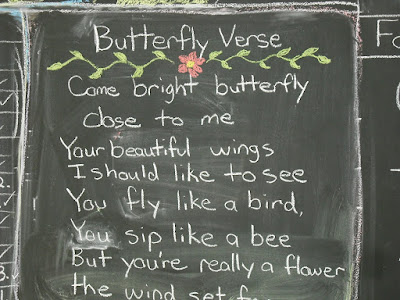 Butterfly Verse
Come bright butterfly
close to me
Your beautiful wings
I should like to see
You fly like a bird,
You sip like a bee
But you're really a flower
the wind set